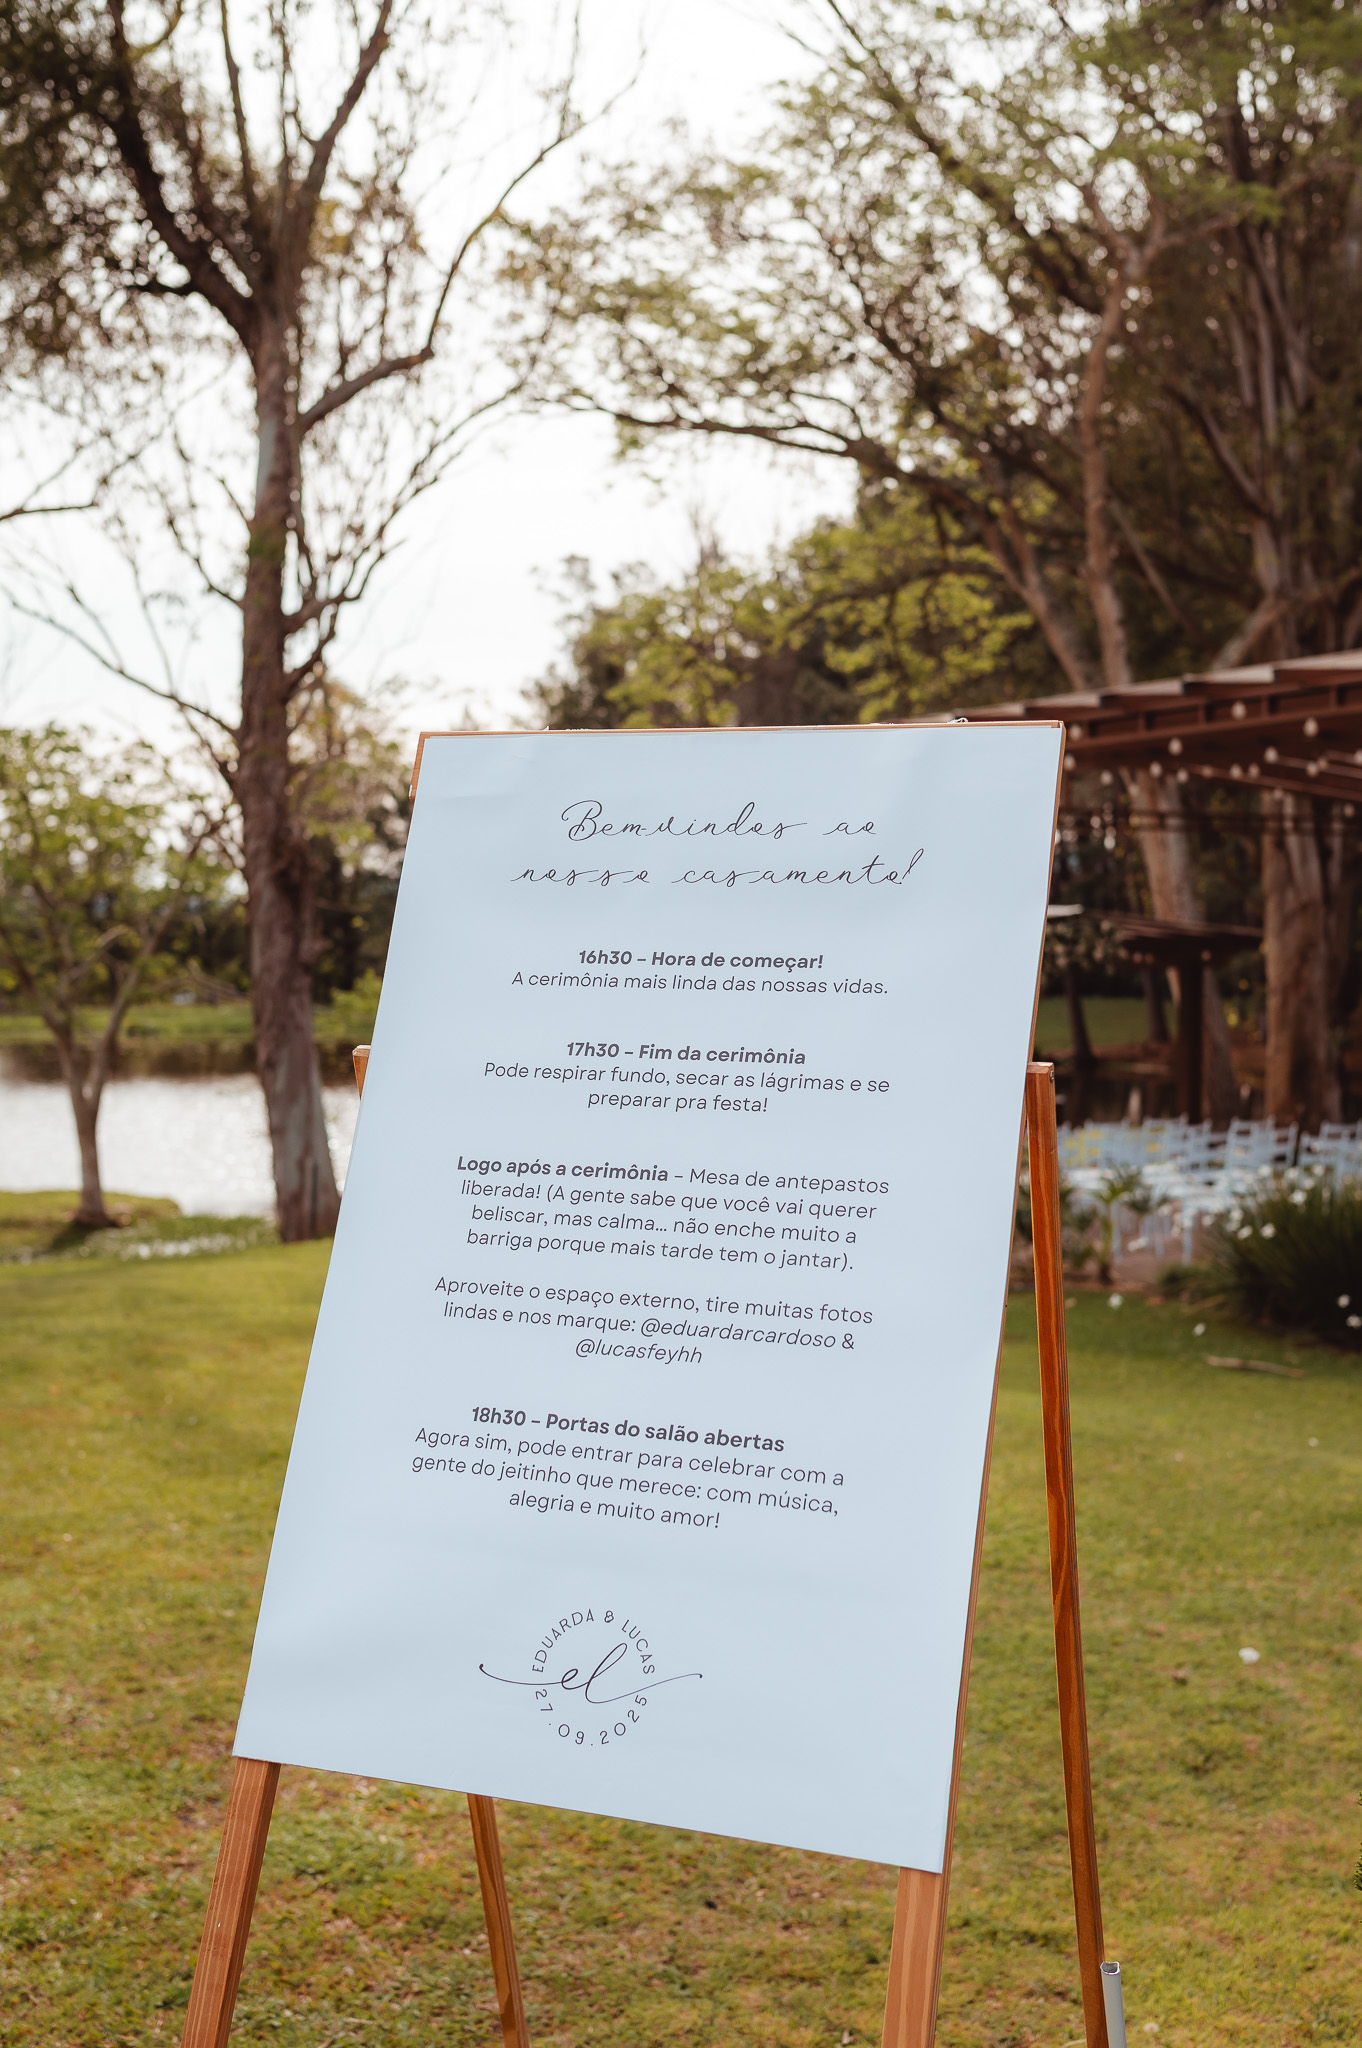 Bem-vindos ao
nosso casamento!
16h30 – Hora de começar!
A cerimônia mais linda das nossas vidas.
17h30 – Fim da cerimônia
Pode respirar fundo, secar as lágrimas e se
preparar pra festa!
Logo após a cerimônia – Mesa de antepastos
liberada! (A gente sabe que você vai querer
beliscar, mas calma... não enche muito a
barriga porque mais tarde tem o jantar).
Aproveite o espaço externo, tire muitas fotos
lindas e nos marque: @eduardarcardoso &
@lucasfeyhh
18h30 – Portas do salão abertas
Agora sim, pode entrar para celebrar com a
gente do jeitinho que merece: com música,
alegria e muito amor!
EDUARDA & LUCAS
el
27.09.2025